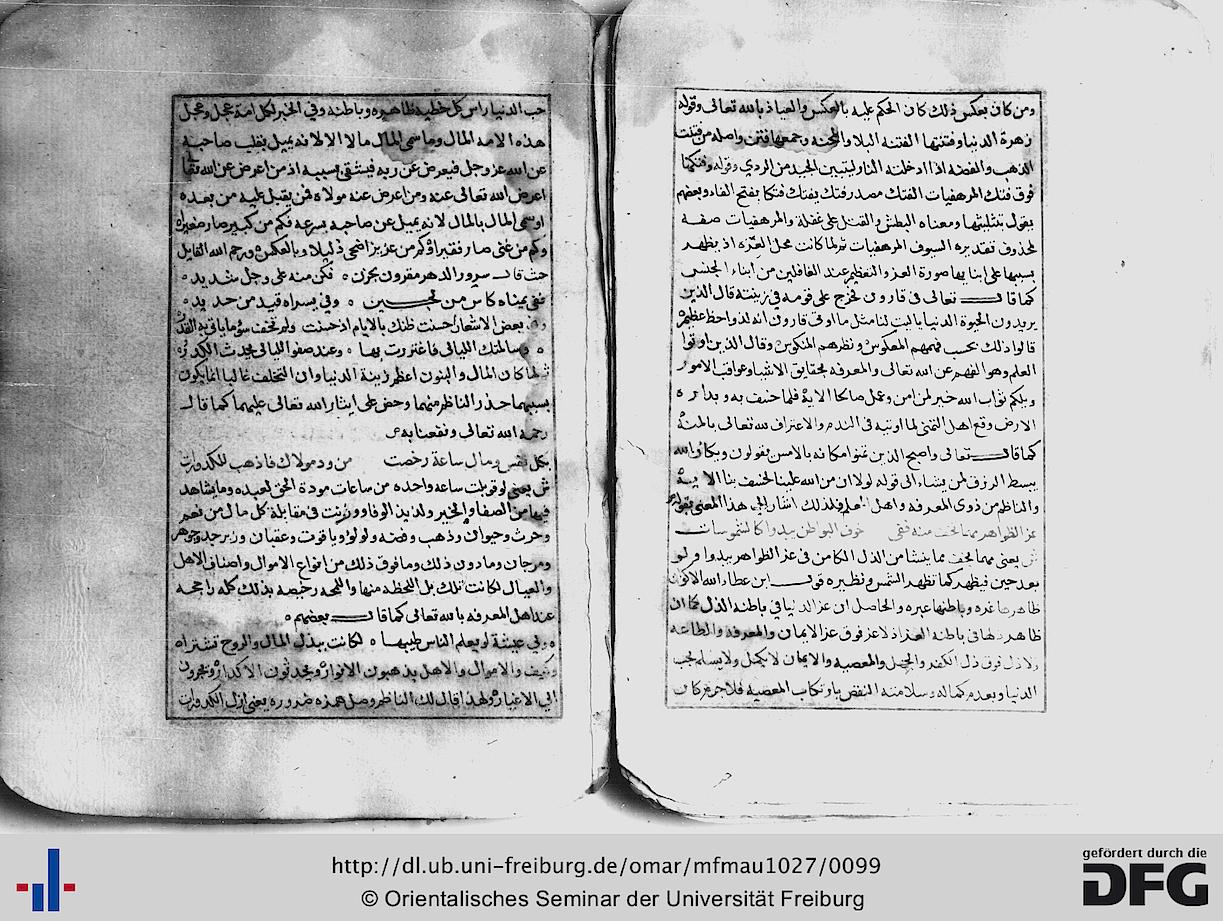 ومن كان بعكس ذلك كان الحكم عليه بالعكس والعياذ بالله تعالى وقوله
زهرة الدنيا وفتنتها الفتنه البلا والمحنه وجمعها فتن واصله من فتنت
الذهب والفضه اذا ادخلته النار ليتبين الجيد من الردي وقوله وفتكها
فوق فتك المرهفيات الفتك مصدر فتك يفتك فتكا بفتح الفاء وبعضهم
يقول بتثليثها ومعناه البطش والقتل على غفلة والمرهفيات صفه
لمحذوف تقديره السيوف المرهفيات ثم لما كانت محل العزه اذ يظهر
بسببها على ابنايها صورة العز والتعظيم عند الغافلين من ابناء الجنس
كما قال تعالى في قارون فخرج على قومه في زينته قال الذين
يريدون الحيوة الدنيا ياليت لنا مثل ما اوتي قارون انه لذو احظ عظيم
قالوا ذلك بحسب فهمهم المعكوس ونظرهم المنكوس وقال الذين اوتوا
العلم وهو الفهم عن الله تعالى والمعرفه بحقايق الاشيا وعواقب الامور
ويلكم ثواب الله خير لمن امن وعمل صالحا الاية فلما خسف به وبداره
الارض وقع اهل التمني لما اوتيه في الندم والاعتراف لله تعالى بالمنة
كما قال تعالى واصبح الذين تمنوا مكانه بالامس يقولون ويكان الله
يبسط الرزق لمن يشاء الى قوله لولا ان من الله علينا لخسف بنا الاية
والناظم من ذوي المعرفه واهل العلم فلذلك اشار الى هذا المعنى بقوله
عز الظواهر مما تحت منه ففي خوف البواطن يبدوا كالشموسات
ش يعني مما تحت مما ينشا من الذل الكامن في عز الظواهر يبدوا ولو
بعد حين فيظهر كما تظهر الشمس ونظيره قول ابن عطاء الله الاكوان
ظاهرها غره وباطنها عبره والحاصل ان عز الدنيا في باطنه الذل كما ان
ظاهر ذلها في باطنه العز اذ لا عز فوق عز الايمان والمعرفه والطاعه
ولا ذل فوق ذل الكفر والجهل والمعصيه والايمان لا يكمل ولا يسلم لمحب
الدنيا وبعدم كماله وسلامته النقص بارتكاب المعصيه فلا جرم كان
حب الدنيا راس كل خطيه ظاهره وباطنه وفي الخبر لكل امة عجل وعجل
هذه الامه المال وما سمي المال مالا الا لانه يميل بقلب صاحبه
عن الله عز وجل فيعرض عن ربه فيشقى بسببه اذ من اعرض عن الله تعالى
اعرض الله تعالى عنه ومن اعرض عنه مولاه فمن يقبل عليه من بعده
او سمي المال بالمال لانه يميل عن صاحبه بسرعه فكم من كبير صار صغيرا
وكم من غني صار فقيرا وكم من عزيز اضحى ذليلا وبالعكس ورحم الله القايل
حيث قال سرور الدهر مقرون بحزن ه فكن منه على وجل شديد ه
ففي يمناه كاس من لجين ه وفي يسراه قيد من حديد ه
وفي بعض الاشعار احسنت ظنك بالايام اذ حسنت ولم تخف سوء ما ياتي به القدر
ه وسالمتك الليالي فاغتررت بها ه وعند صفو الليالي يحدث الكدر ه
ثم لما كان المال والبنون اعظم زينة الدنيا وان التخلف غالبا انما يكون
بسببهما حذر الناظم منهما وحض على ايثار الله تعالى عليهما كما قال
رحمه الله تعالى ونفعنا به
بكل نفس ومال ساعة رخصت من ود مولاك فاذهب للكدورات
ش يعني لو قوبلت ساعه واحده من ساعات مودة الحق لعبيده وما يشاهد
فيها من الصفا والخير ولذيذ الوفا ووزنت في مقابلة كل مال من نعم
وحرث وحيوان وذهب وفضه ولولو وياقوت وعقيان وزبرجد وجوهر
ومرجان وما دون ذلك وما فوق ذلك من انواع الاموال واصناف الاهل
والعيال لكانت تلك بل اللحظه منها واللمحه رخيصه بذلك كله راجحه
عند اهل المعرفه بالله تعالى كما قال بعضهم ه
ه ولي عيشة لو يعلم الناس طيبها ه لكانت ببذل المال والروح تشتراه
وكيف والاموال والاهل يذهبون الانوار ويحدثون الاكدار ويجرون
الى الاغيار ولهذا قال لك الناظم وصل همزه ضروره يعني انزل الكدورات